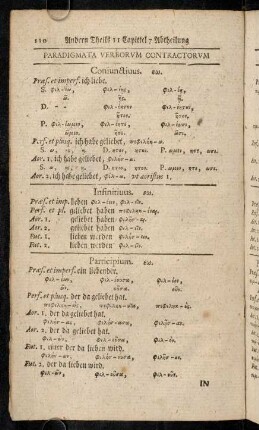 110 Andern Theils 11 Capittel 7 Abtheilung
PARADIGMATA VERBORVM CONTRACTORVM
Coniunctiuus. εω.
Præs. et imperf. ich liebe.
S. φιλ-έω, φιλ-έῃς, φιλ-έῃ,
ῶ. ῇς. ῇ.
D. φιλ-έητον φιλ-έητον,
ῆτον. ῆτον.
P. φιλ-έωμεν, φιλ-έητε, φιλ-έωσι,
ῶμεν. ῆτε. ῶσι.
Perf. et plusq. ich habe geliebet,
S. ω, ῃς, ῃ. D. ητον, ητον. P. ωμεν, ητε, ωσι.
Aor. 1. ich habe geliebet, φιλήσ-ω.
S. ω, ῃς, ῃ. D. ητον, ητον. P. ωμεν, ητε, ωσι.
Aor. 2. ich habe geliebet,
Infinitiuus. εω.
Præs. et imp. lieben φιλ-έειν, φιλ-εῖν.
Perf. et pl. geliebet haben
Aor. 1. geliebet haben
Aor. 2. geliebet haben
Fut. 1. lieben werden
Fut. 2. lieben werden φιλ-εῖν.
Participium. εω.
Præs. et imperf. ein liebender.
φιλ-έων, φιλ-έουσα, φιλ-έον,
ῶν. οῦσα. οῦν.
Perf. et plusq. der da geliebet hat.
Aor. 1. der da geliebet hat.
φιλήσ-ας, φιλήσ-ασα, φιλήσ-αν.
Aor. 2. der da geliebet hat.
Fut. 1. einer der da lieben wird.
φιλήσ-ων, φιλήσ-ουσα, φιλήσ-ον.
Fut. 2. der da lieben wird.
φιλ-ῶν, φιλ-οῦσα, φιλ-οῦν.
IN